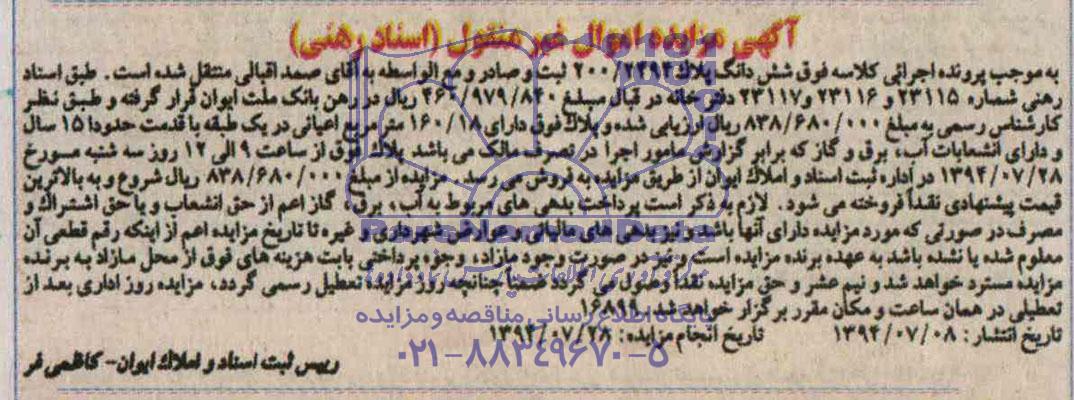 آگهی مزایده اموال غیر منقول (اسناد رهنی)
به موجب پرونده اجرائی کلاسه فوق شش دانگ پلاک ۲۰۰/۲۳۹۳ ثبت و صادر و مع الواسطه به آقای صمد اقبالی منتقل شده است. طبق اسناد
رهنی شماره ۲۳۱۱۵ و ۲۳۱۱۶ و ۲۳۱۱۷ دفترخانه در قبال مبلغ ۴۶۰/۹۷۹/۸۴۰ ریال در رهن بانک ملت ایوان قرار گرفته و طبق نظر
کارشناس رسمی به مبلغ ۸۳۸/۶۸۰/۰۰۰ ریال ارزیابی شده و پلاک فوق دارای ۱۶۰/۱۸ متر مربع اعیانی در یک طبقه با قدمت حدودا ۱۵ سال
و دارای انشعابات آب، برق و گاز که برابر گزارش مامور اجرا در تصرف مالک می باشد پلاک فوق از ساعت ۹ الی ۱۲ روز سه شنبه مورخ
۱۳۹۴/۰۷/۲۸ در اداره ثبت اسناد و املاک ایوان از طریق مزایده به فروش می رسد. مزایده از مبلغ ۸۳۸/۶۸۰/۰۰۰ ریال شروع و به بالاترین
قیمت پیشنهادی نقداً فروخته می شود. لازم به ذکر است پرداخت بدهی های مربوط به آب، برق، گاز اعم از حق انشعاب و یا حق اشتراک و
مصرف در صورتی که مورد مزایده دارای آنها باشد و نیز بدهی های مالیاتی و عوارض شهرداری و غیره تا تاریخ مزایده اعم از اینکه رقم قطعی آن
معلوم شده یا نشده باشد به عهده برنده مزایده است و نیز در صورت وجود مازاد، وجوه پرداختی بابت هزینه های فوق از محل مازاد به برنده
مزایده مسترد خواهد شد و نیم عشر و حق مزایده نقداً وصول می گردد ضمناً چنانچه روز مزایده تعطیل رسمی گردد، مزایده روز اداری بعد از
تعطیلی در همان ساعت و مکان مقرر برگزار خواهد شد. ۱۶۸۹۹
پایگاه اطلاع رسانی مناقصه و مزایده
تاریخ انتشار: ۱۳۹۴/۰۷/۰۸ تاریخ انجام مزایده: ۱۳۹۴/۰۷/۲۸
۰۲۱-۸۸۳۴۹۶۷۰-۵
رییس ثبت اسناد و املاک ایوان- کاظمی فر